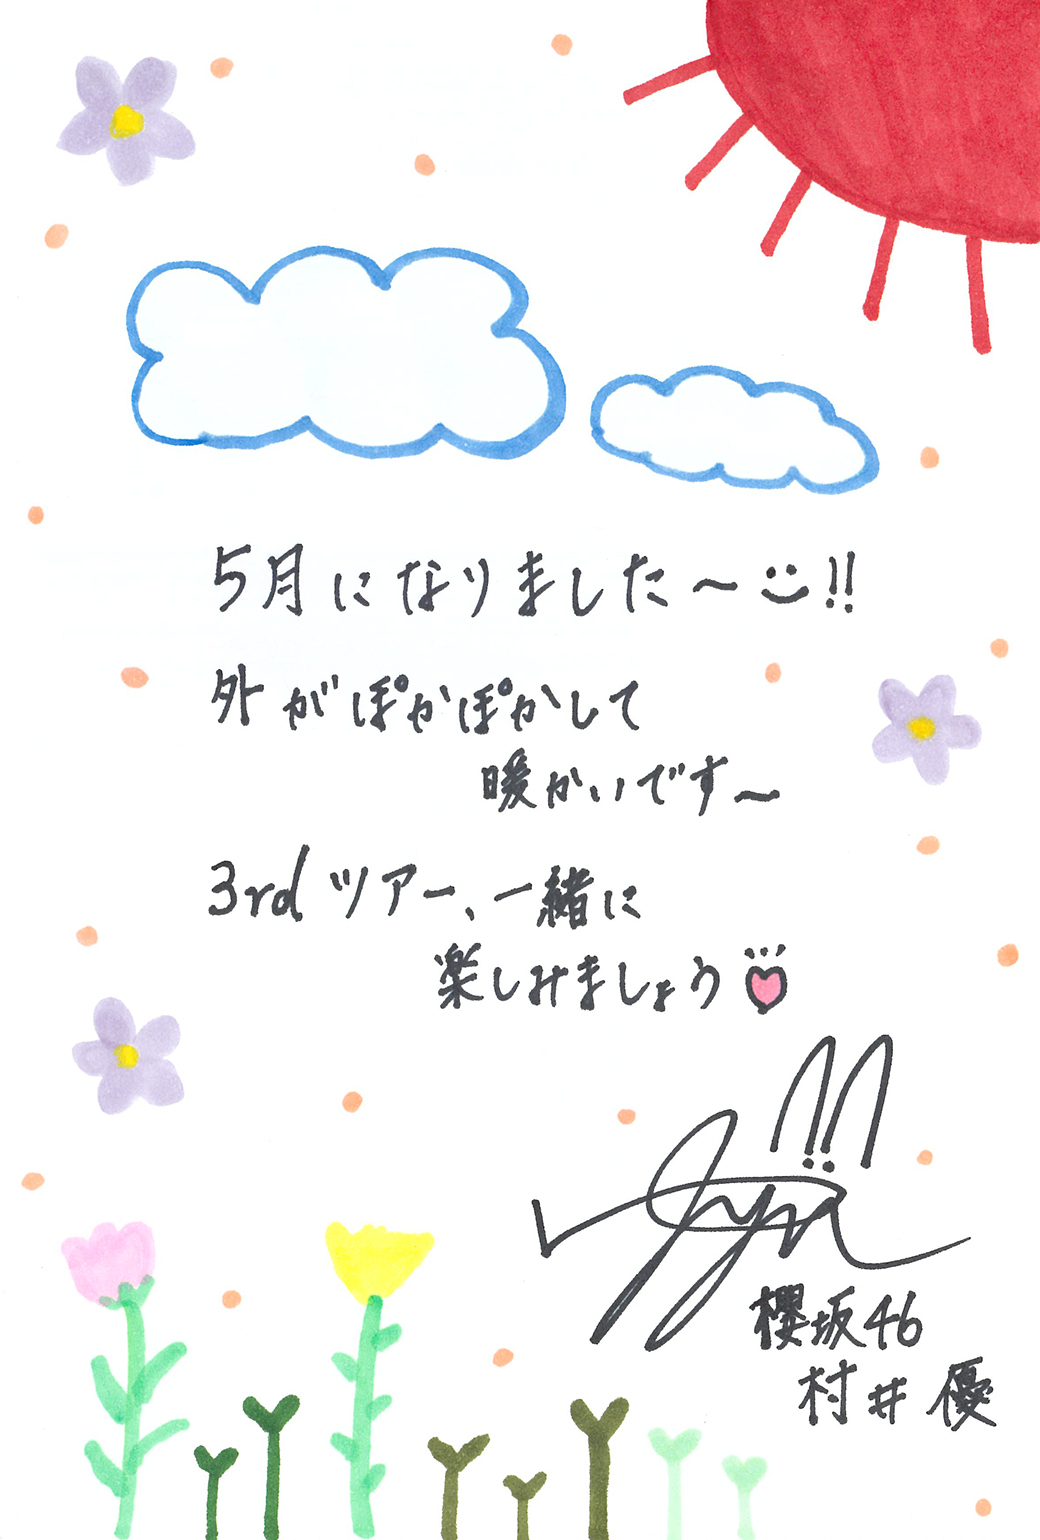 5月になりました〜!!
外がぽかぽかして
暖かいです〜
3rdツアー、一緒に
楽しみましょう
櫻坂46
村井 優